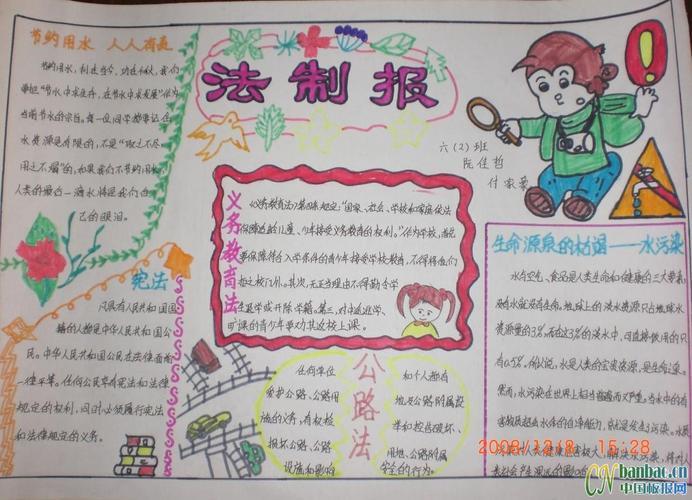 节约用水 人人有责
节约用水,利在当今,功在千秋,我们
要把"节水中求生存,在节水中求发展"作为
当前节水的宗旨。每一位同学都要达
水资源是有限的,不是"取之不尽,
用之不竭"的,如果我们不节约用水,
人类的最后一滴水将是我们自
己的眼泪。
法制报
六(2)班
阮佳哲
付
义务教育法
《义务教育法》第4条规定:"国家、社会、学校和家庭依法
保障适龄儿童、少年接受义务教育的权利。"作为学校,首先
要保障符合入学条件的青少年接受学校教育,不得将他们
拒之校门外。其次,无正当理由不得勒令学
生退学或开除学籍。第三,对中途逃学、
旷课的青少年要劝其返校上课。
宪法
凡具有人民共和国国
籍的人都是中华人民共和国公
民。中华人民共和国公民在法律面前
一律平等。任何公民享有宪法和法律
规定的权利,同时必须履行宪法
和法律规定的义务。
公路法
任何单位
爱护公路、公路用
地的义务,有权检
损坏公路、公路
设施和影响
和个人都有
地及公路附属设
举和控告破坏
用地、公路附属
安全的行为。
生命源泉的枯竭——水污染
水与空气、食品是人类生命和健康的三大要素,
没有水就没有生命。地球上的淡水资源只占地球水
资源量的3%,而在这3%的淡水中,可直接饮用的只
有0.5%。所以说,水是人类的宝贵资源,是生命之源。
然而,水污染在世界上相当普遍而又严重。当水中的有
害物质超出水体的自净能力,就是发生了污染。
2008/12/8 15:28
CN banbao.cn
中国板报网